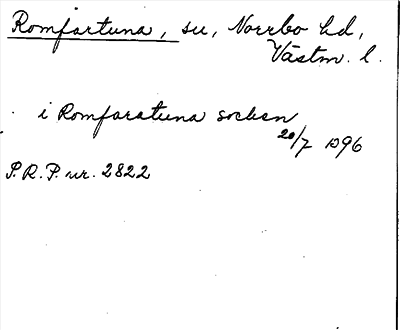 Romfartuna, sn, Norrbo hd,
Västm. l.
i Romfaratuna socken
20/7 1396
P.R.P. nr. 2822